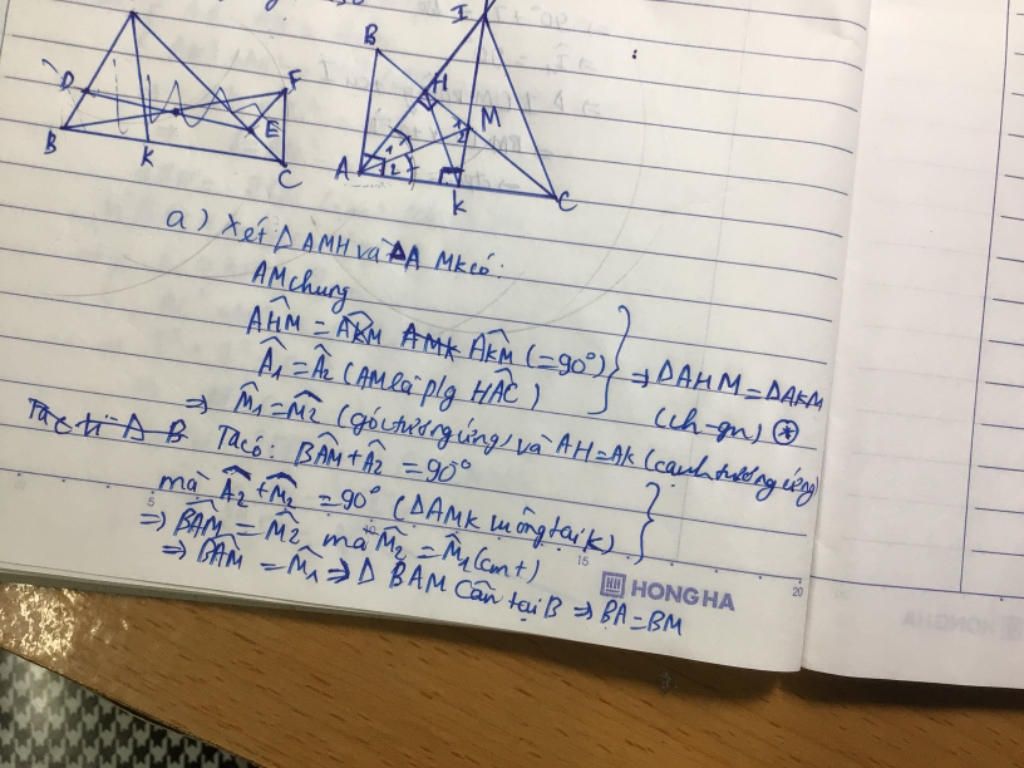 I
B
H
D
F
M
E
B
K
C
A
1
2
1
2
K
C
a) Xét Δ AMH và ΔA MK có:
AM chung
AĤM = AK̂M AMK AK̂M (=90°)
Â1 = Â2 (AM là p/g HÂC)
⇒ ΔAHM = ΔAKM
(ch-gn) (*)
⇒ M̂1 = M̂2 (góc tương ứng) và AH = AK (cạnh tương ứng)
Ta có: BÂM + Â2 = 90°
mà Â2 + M̂2 = 90° (ΔAMK vuông tại K)
⇒ BÂM = M̂2 mà M̂2 = M̂1 (cmt)
⇒ BÂM = M̂1 ⇒ Δ BAM Cân tại B ⇒ BA = BM
5
10
15
20
HONG HA